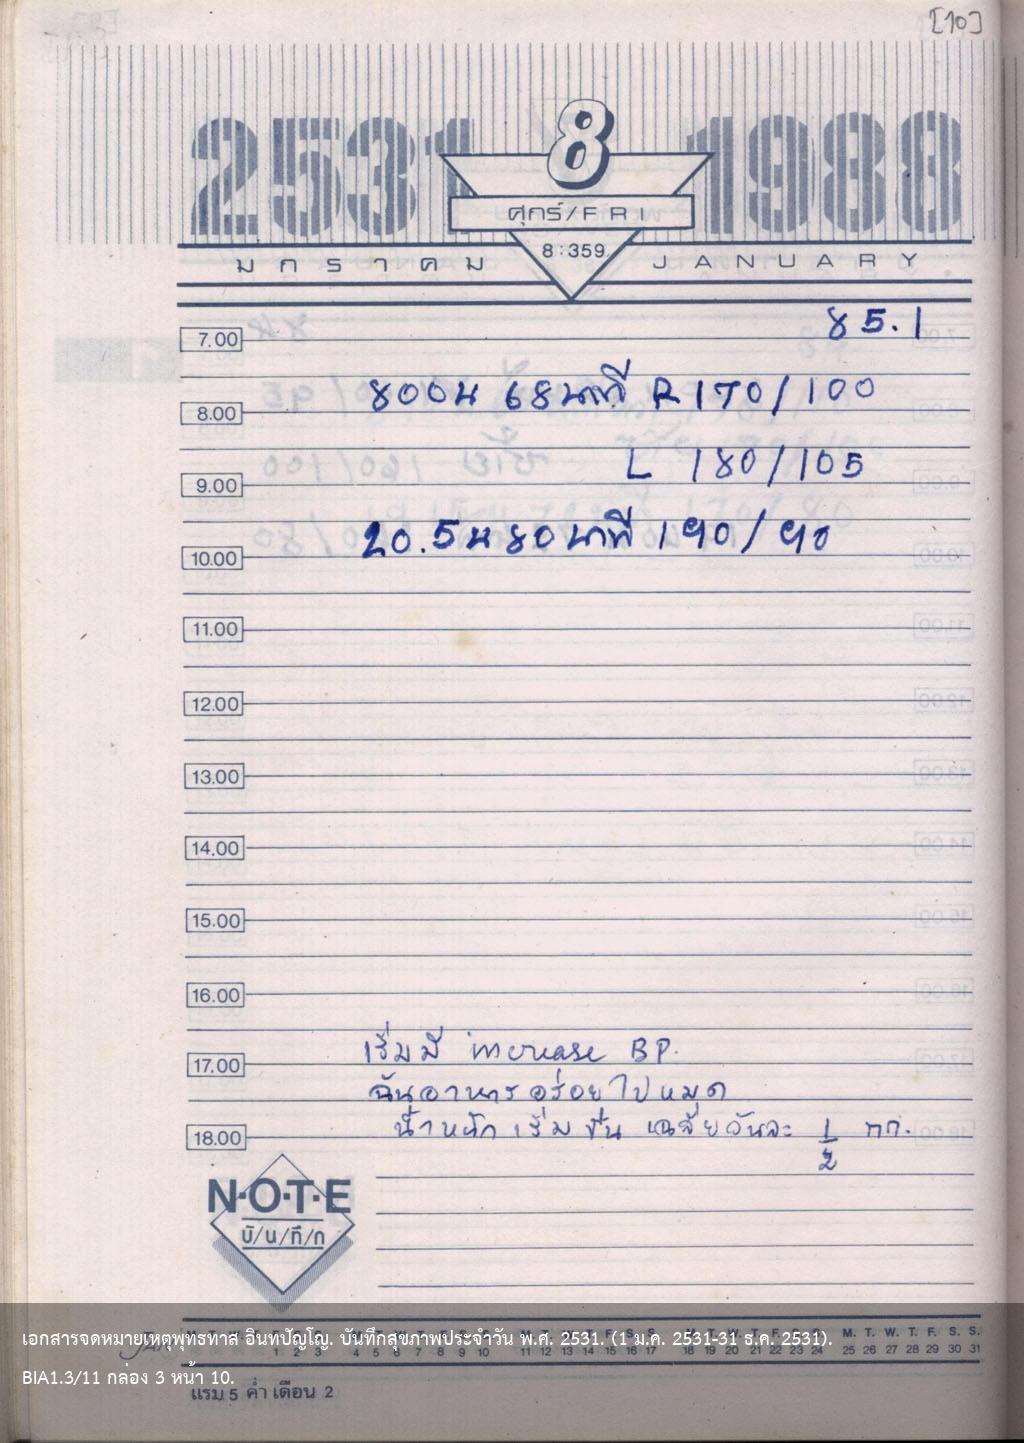 [10]
2531 8 1988
ศุกร์/FRI
8:359
มกราคม JANUARY
85.1
7.00
800น 68 นาที R 170/100
8.00
L 180/105
9.00
20.5น 80 นาที 190/90
10.00
11.00
12.00
13.00
14.00
15.00
16.00
เริ่มมี increase BP.
17.00
ฉันอาหารอร่อยไปหมด
น้ำหนักเริ่มขึ้น เฉลี่ยวันละ 1/2 กก.
18.00
N·O·T·E
บั/น/ทึ/ก
เอกสารจดหมายเหตุพุทธทาส อินทปัญโญ. บันทึกสุขภาพประจำวัน พ.ศ. 2531. (1 ม.ค. 2531-31 ธ.ค. 2531).
M. T. W. T. F. S. S.
1 2 3 4 5 6 7 8 9 10 11 12 13 14 15 16 17 18 19 20 21 22 23 24 25 26 27 28 29 30 31
BIA1.3/11 กล่อง 3 หน้า 10.
แรม 5 ค่ำ เดือน 2